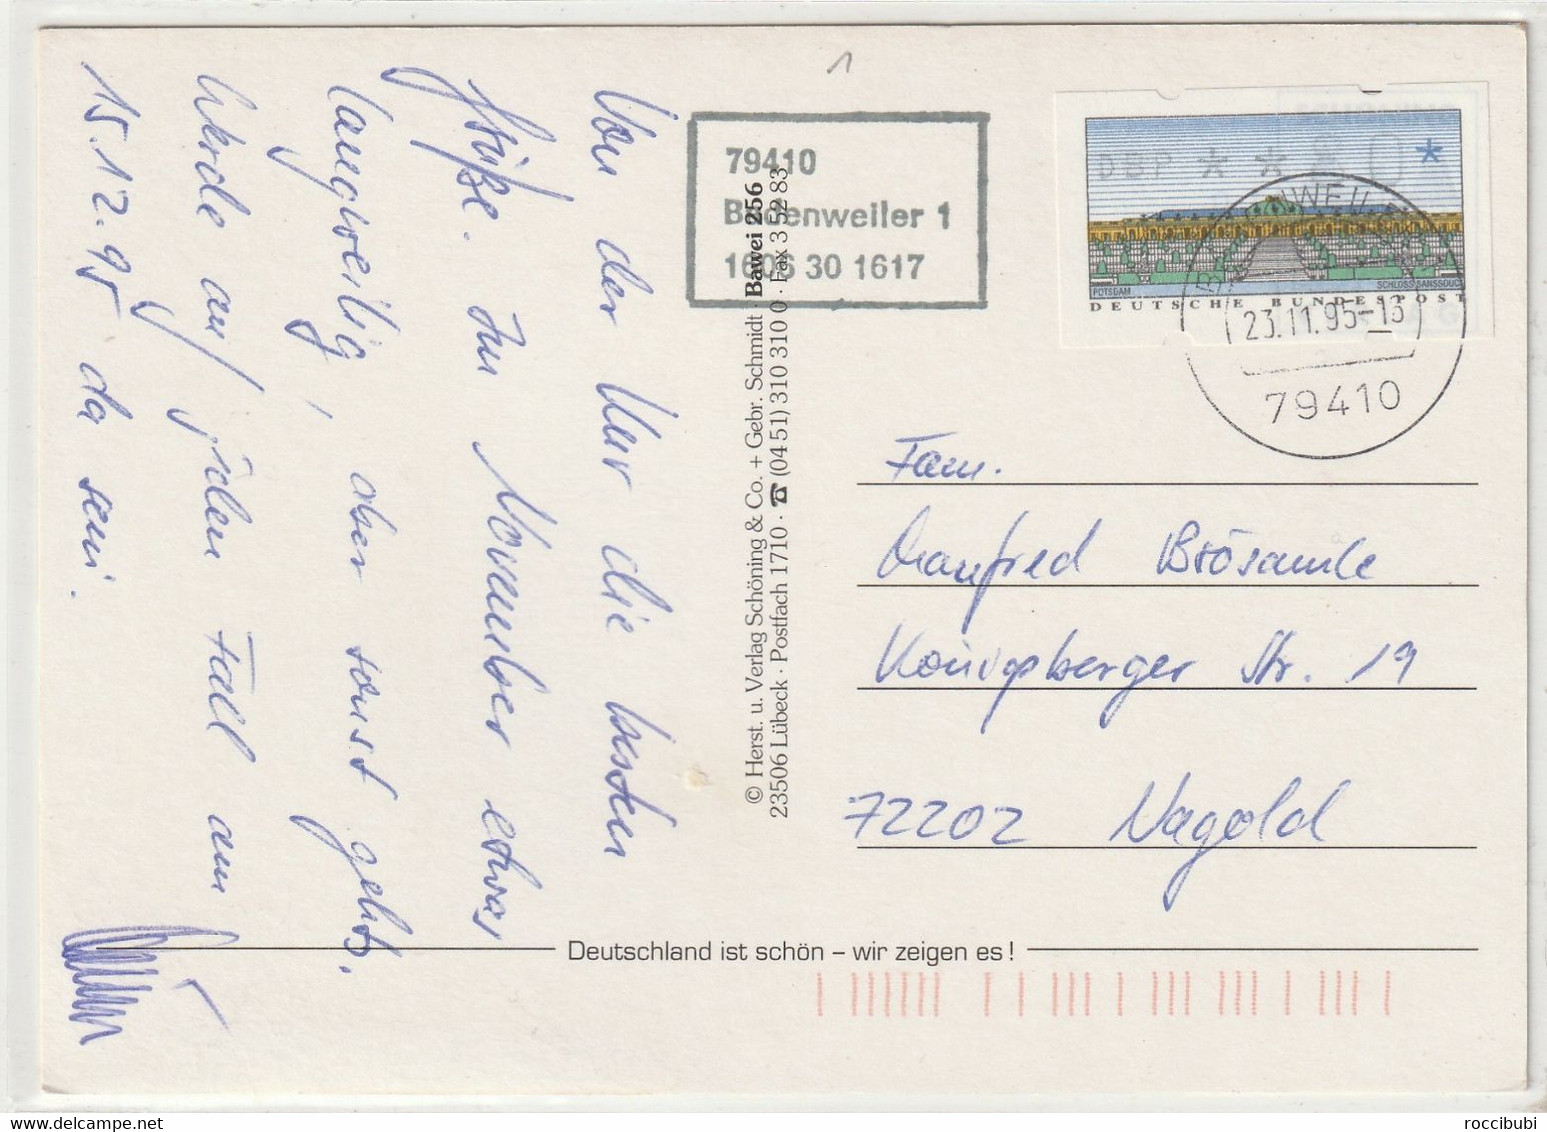 Von der Kur die besten
Grüße. Im November etwas
langweilig, aber sonst gehts.
Werde auf jeden Fall am
15.12.95 da sein.
1
79410
Badenweiler 1
1606 30 1617
© Herst. u. Verlag Schöning & Co. + Gebr. Schmidt · Bawei 256
23506 Lübeck · Postfach 1710 · ☎ (04 51) 310 310 0 · Fax 3 52 83
DBP
POTSDAM
SCHLOSS SANSSOUCI
DEUTSCHE BUNDESPOST
23.11.95-13
79410
Fam.
Manfred Brösamle
Königsberger Str. 19
72202 Nagold
Deutschland ist schön – wir zeigen es!
www.delcampe.net
roccibubi